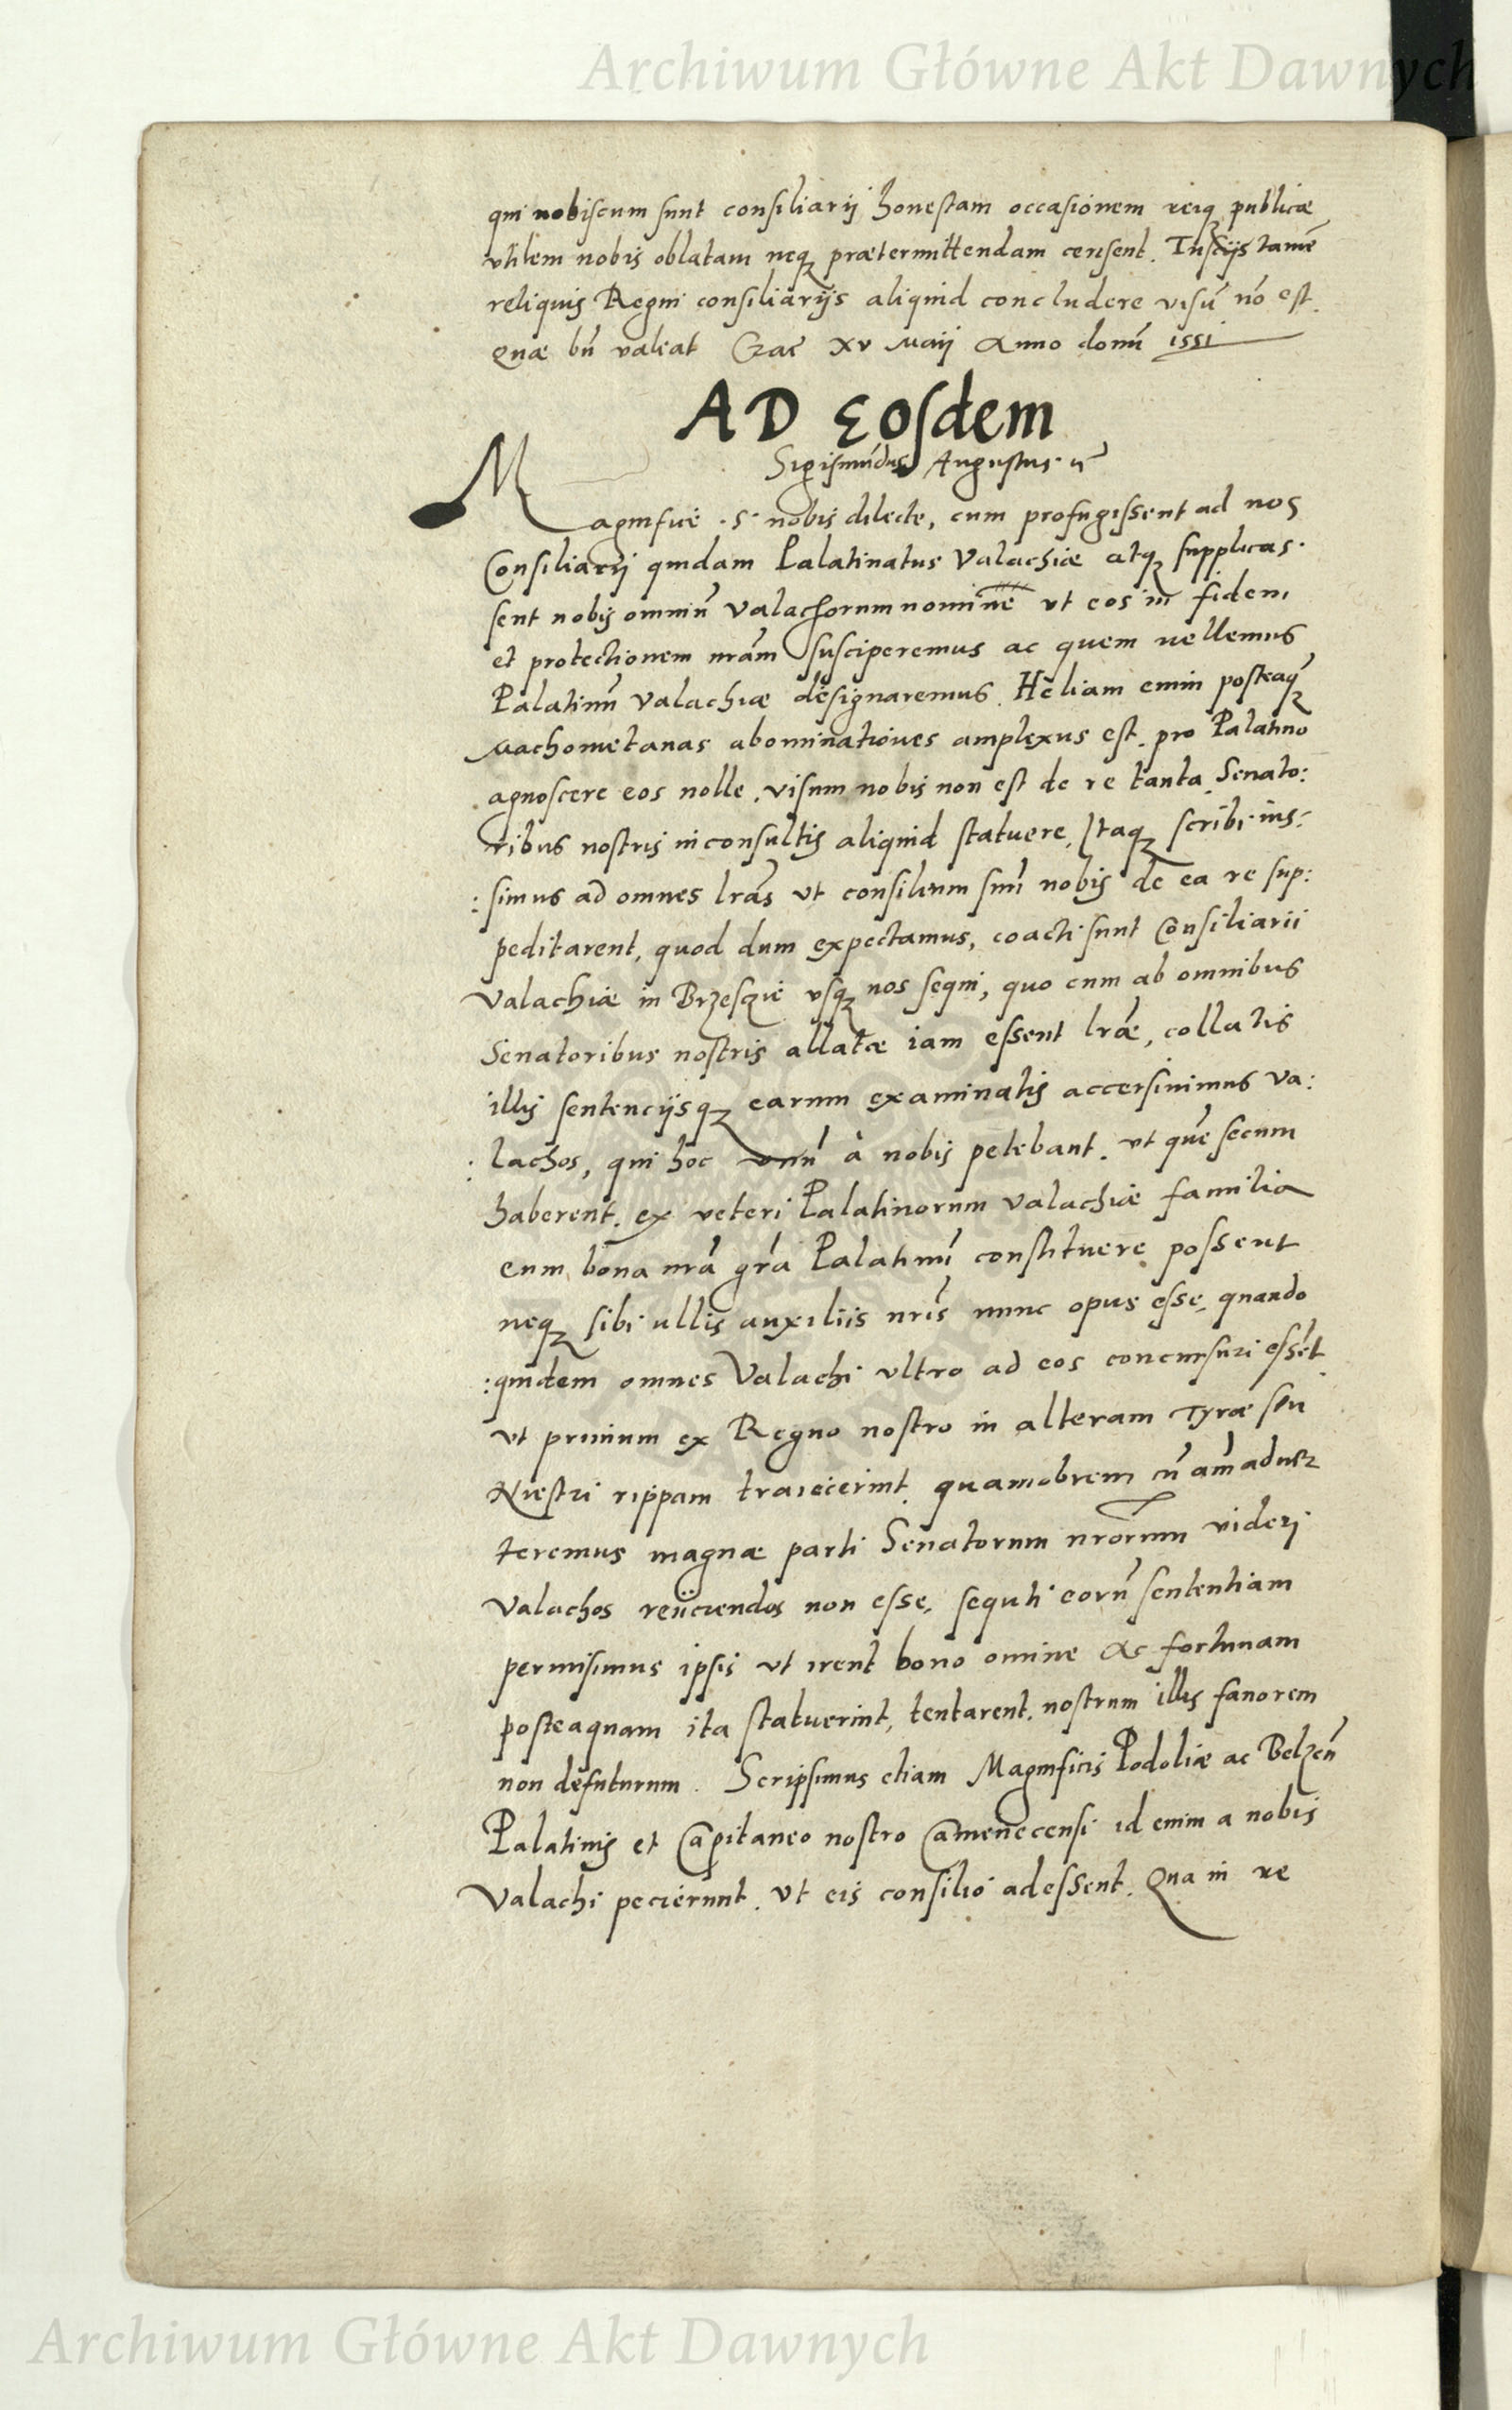 Archiwum Główne Akt Dawnych
qui nobiscum sunt consiliarij honestam occasionem reiq publicæ
vtilem nobis oblatam neq prætermittendam censent. Insciis tamē
reliquis Regni consiliarijs aliquid concludere visū nō est.
Quæ bn̄ valeat Crac xv Maij Anno domī 1551
AD Eosdem
Sigismūdus Augustus
Magnifice .S. nobis dilecte, cum profugissent ad nos
Consiliarij quidam Palatinatus Valachiæ atq supplicas.
sent nobis omniū Valachorum nomine ut eos in fidem
et protectionem nrām susciperemus ac quem vellemus
Palatinū Valachiæ designaremus. Heliam enim posteaq
Machometanas abominationes amplexus est. pro Palatino
agnoscere eos nolle. visum nobis non est de re tanta Senato:
ribus nostris inconsultis aliquid statuere, Itaq scribi ius:
:simus ad omnes lrās ut consilium suū nobis de ea re sup:
peditarent, quod dum expectamus, coacti sunt Consiliarii
Valachiæ in Brzesczie vsq nos sequi, quo cum ab omnibus
Senatoribus nostris allatæ iam essent lræ, collatis
illis sentenciisq earum examinatis accersiuimus Va:
:lachos, qui hoc vnū à nobis petebant. ut quē secum
haberent. ex veteri Palatinorum Valachiæ familia
eum bona nrā grā Palatinū constituere possent
neq sibi ullis auxiliis nrīs nunc opus esse, quando
:quidem omnes Valachi ultro ad eos concursuri essēt.
ut primum ex Regno nostro in alteram Tyræ seu
Niestri rippam traiecerint. quamobrem cū animaduer
teremus magnæ parti Senatorum nrorum videri
Valachos reiiciendos non esse, sequti eorū sententiam
permisimus ipsis ut irent bono omine ac fortunam
posteaquam ita statuerint, tentarent. nostrum illis fauorem
non defuturum. Scripsimus etiam Magnificis Podoliæ ac Belzeñ
Palatinis et Capitaneo nostro Camenecensi id enim a nobis
Valachi pecierunt. ut eis consilio adessent. Qua in re
Archiwum Główne Akt Dawnych